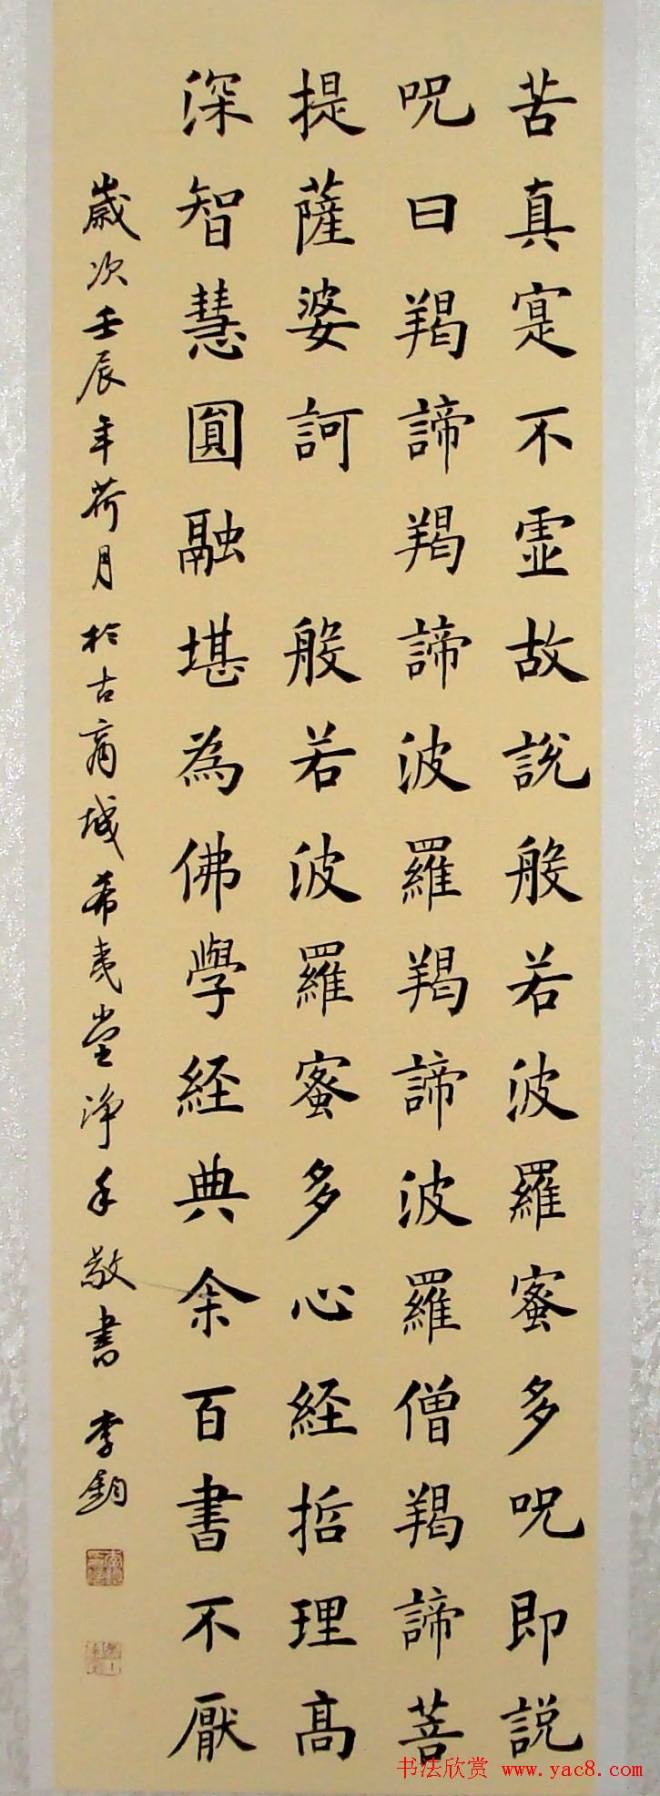 苦真寔不虛故說般若波羅蜜多呪即說
呪曰羯諦羯諦波羅羯諦波羅僧羯諦菩
提薩婆訶 般若波羅蜜多心経哲理高
深智慧圓融堪為佛學経典余百書不厭
歲次壬辰年荷月於古商城希夷堂淨手敬書 李
书法欣赏 www.yac8.com